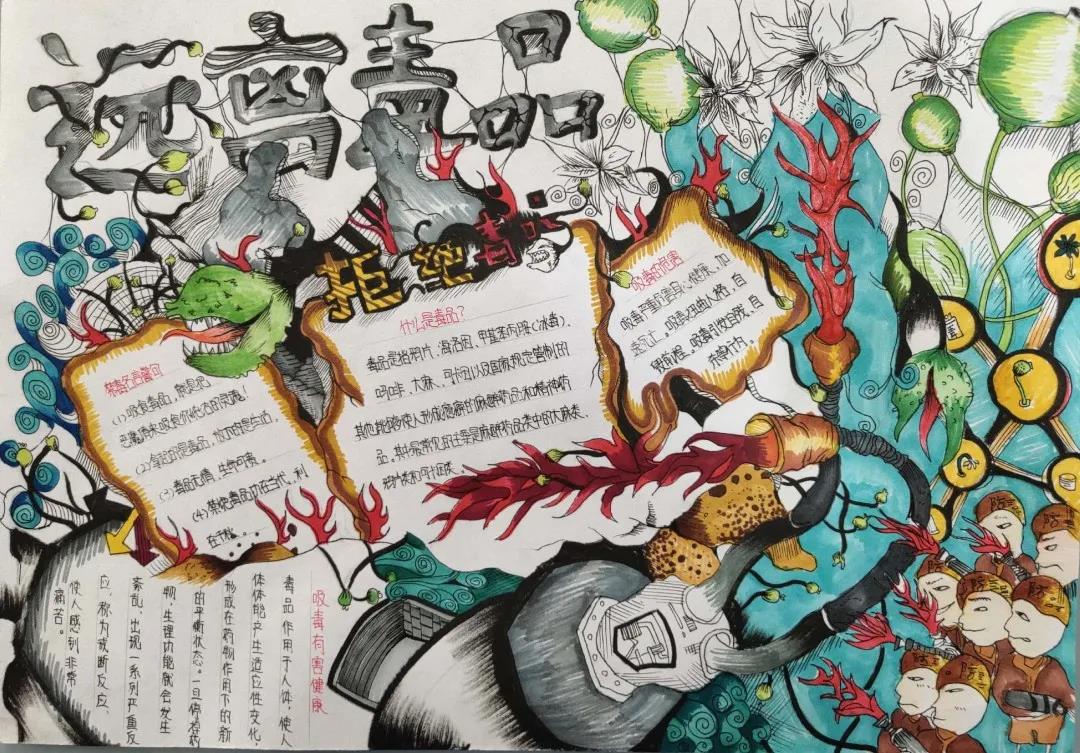 远离毒品
拒绝毒品
禁毒主言警句
(1)吸食毒品,就是把
恶魔请来吸食你生活的灵魂!
(2)拿起的是毒品,放下的是生活。
(3)毒品无情,生命可贵。
(4)禁绝毒品功在当代,利
在千秋。
什么是毒品?
毒品是指鸦片、海洛因、甲基苯丙胺(冰毒)、
吗啡、大麻、可卡因以及国家规定管制的
其他能够使人形成瘾癖的麻醉药品和精神药
品,其中最常见的主要是麻醉药品类中的大麻类、
鸦片类和可卡因类。
吸毒的危害
吸毒严重危害身心健康,
甚至死亡。吸毒
毁前程。吸毒引发自残、自
杀等行为。
吸毒有害健康
毒品作用于人体,使人
体体能产生适应性变化,
形成在药物作用下的新
的平衡状态。一旦停掉药
物,生理功能就会发生
紊乱,出现一系列严重反
应,称为戒断反应,
使人感到非常
痛苦。
防毒
防毒
防毒
防毒
防毒
防毒
防毒